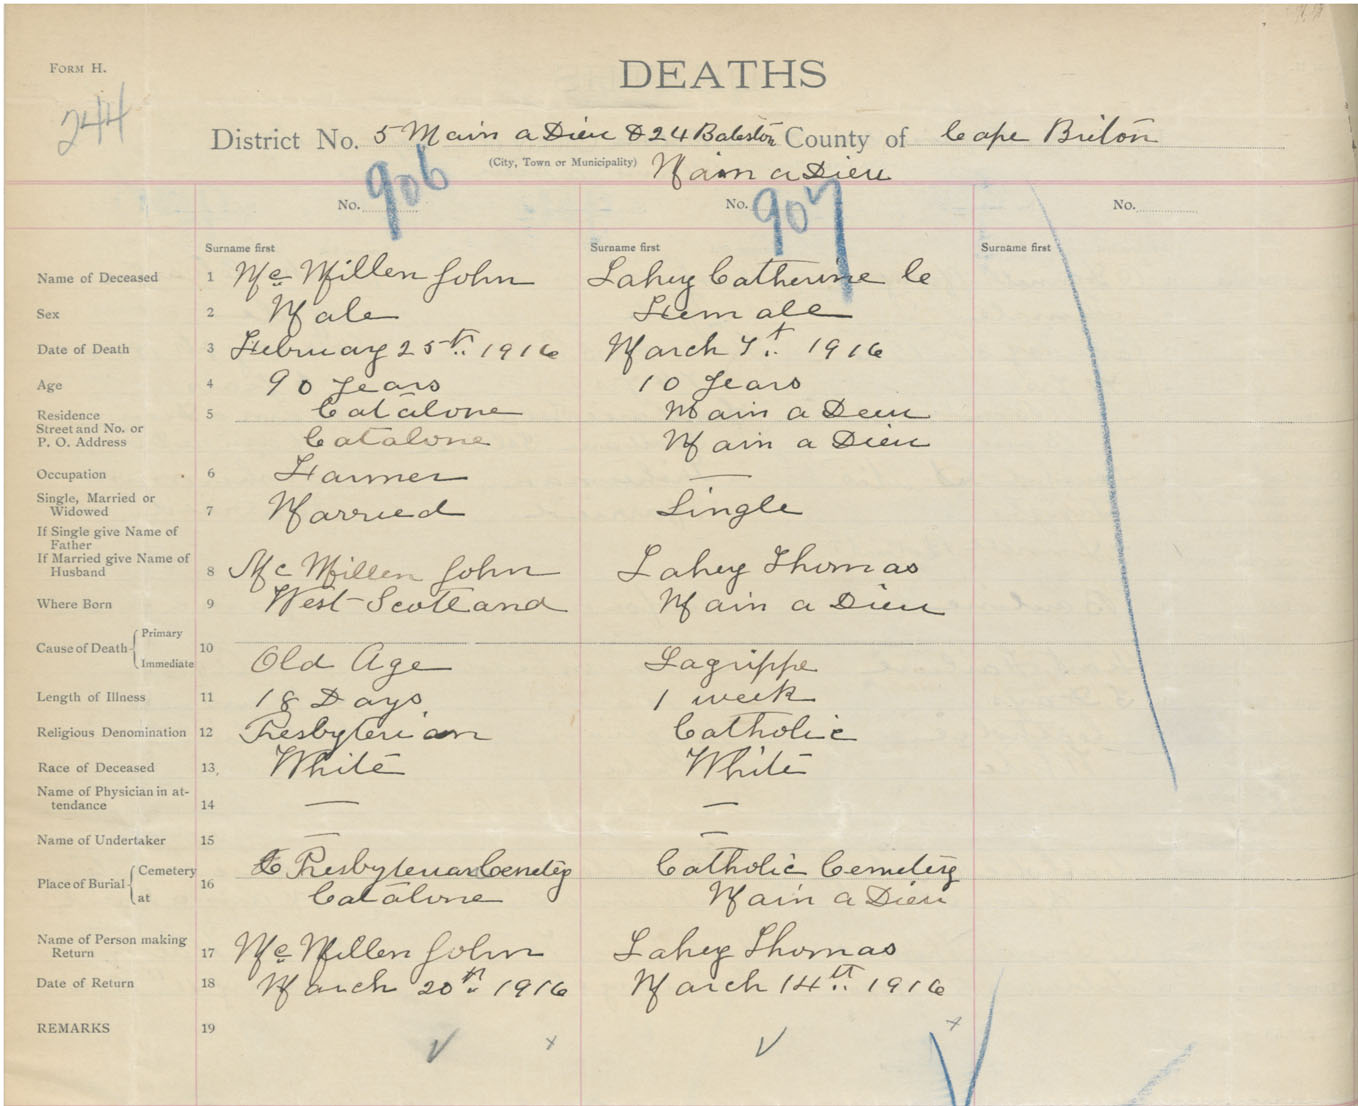 FORM H.
DEATHS
244
District No. 5 Main a Dieu & 24 Baleston County of Cape Briton
(City, Town or Municipality) Main a Dieu
No. 906 No. 907 No.
Surname first Surname first Surname first
Name of Deceased 1 Mc Millen John Lahey Catherine C
Sex 2 Male Female
Date of Death 3 February 25th 1916 March 7t 1916
Age 4 90 years 10 years
Residence 5 Catalone Main a Deiu
Street and No. or
P. O. Address Catalone Main a Dieu
Occupation 6 Farmer —
Single, Married or
Widowed 7 Married Single
If Single give Name of
Father
If Married give Name of
Husband 8 Mc Millen John Lahey Thomas
Where Born 9 West Scotland Main a Dieu
Cause of Death Primary 10
Immediate Old Age Lagrippe
Length of Illness 11 18 Days 1 week
Religious Denomination 12 Presbyterian Catholic
Race of Deceased 13 White White
Name of Physician in at-
tendance 14 — —
Name of Undertaker 15 — —
Place of Burial Cemetery 16 Presbyterian Cemetery Catholic Cemetery
at Catalone Main a Dieu
Name of Person making
Return 17 Mc Millen John Lahey Thomas
Date of Return 18 March 20th 1916 March 14th 1916
REMARKS 19